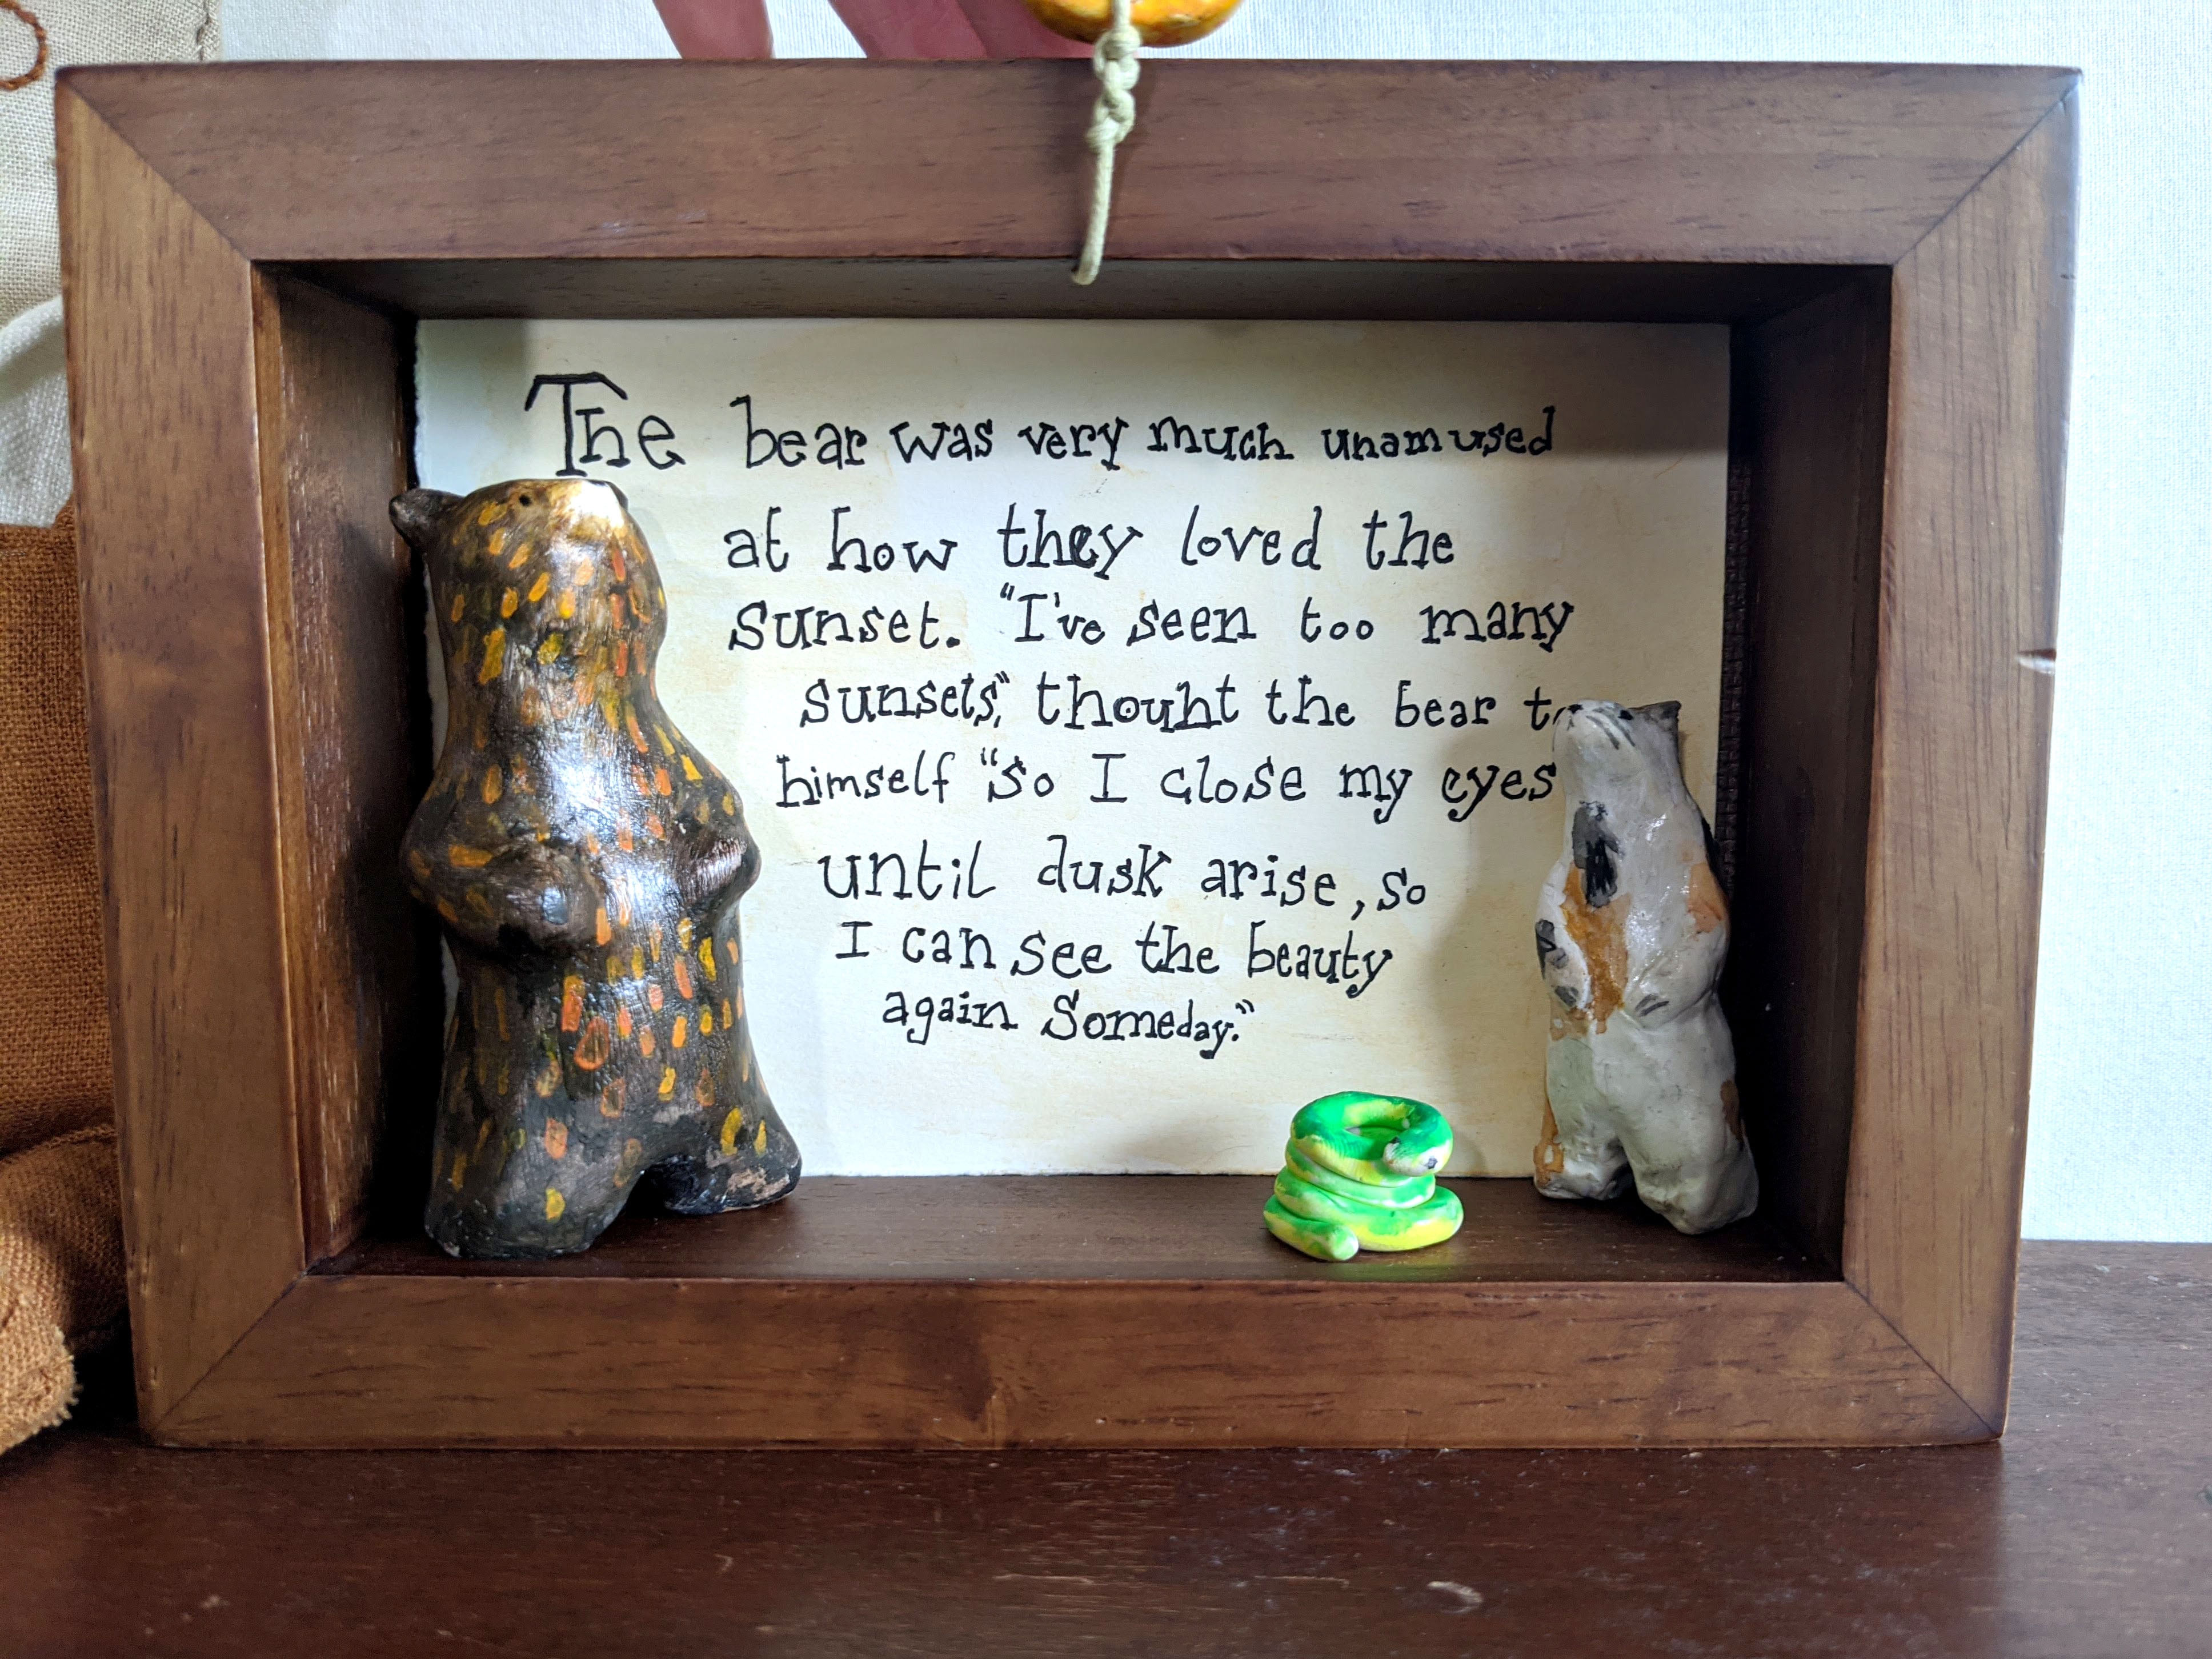 The bear was very much unamused
at how they loved the
sunset. "I've seen too many
sunsets," thouht the bear to
himself "so I close my eyes
until dusk arise, so
I can see the beauty
again someday."